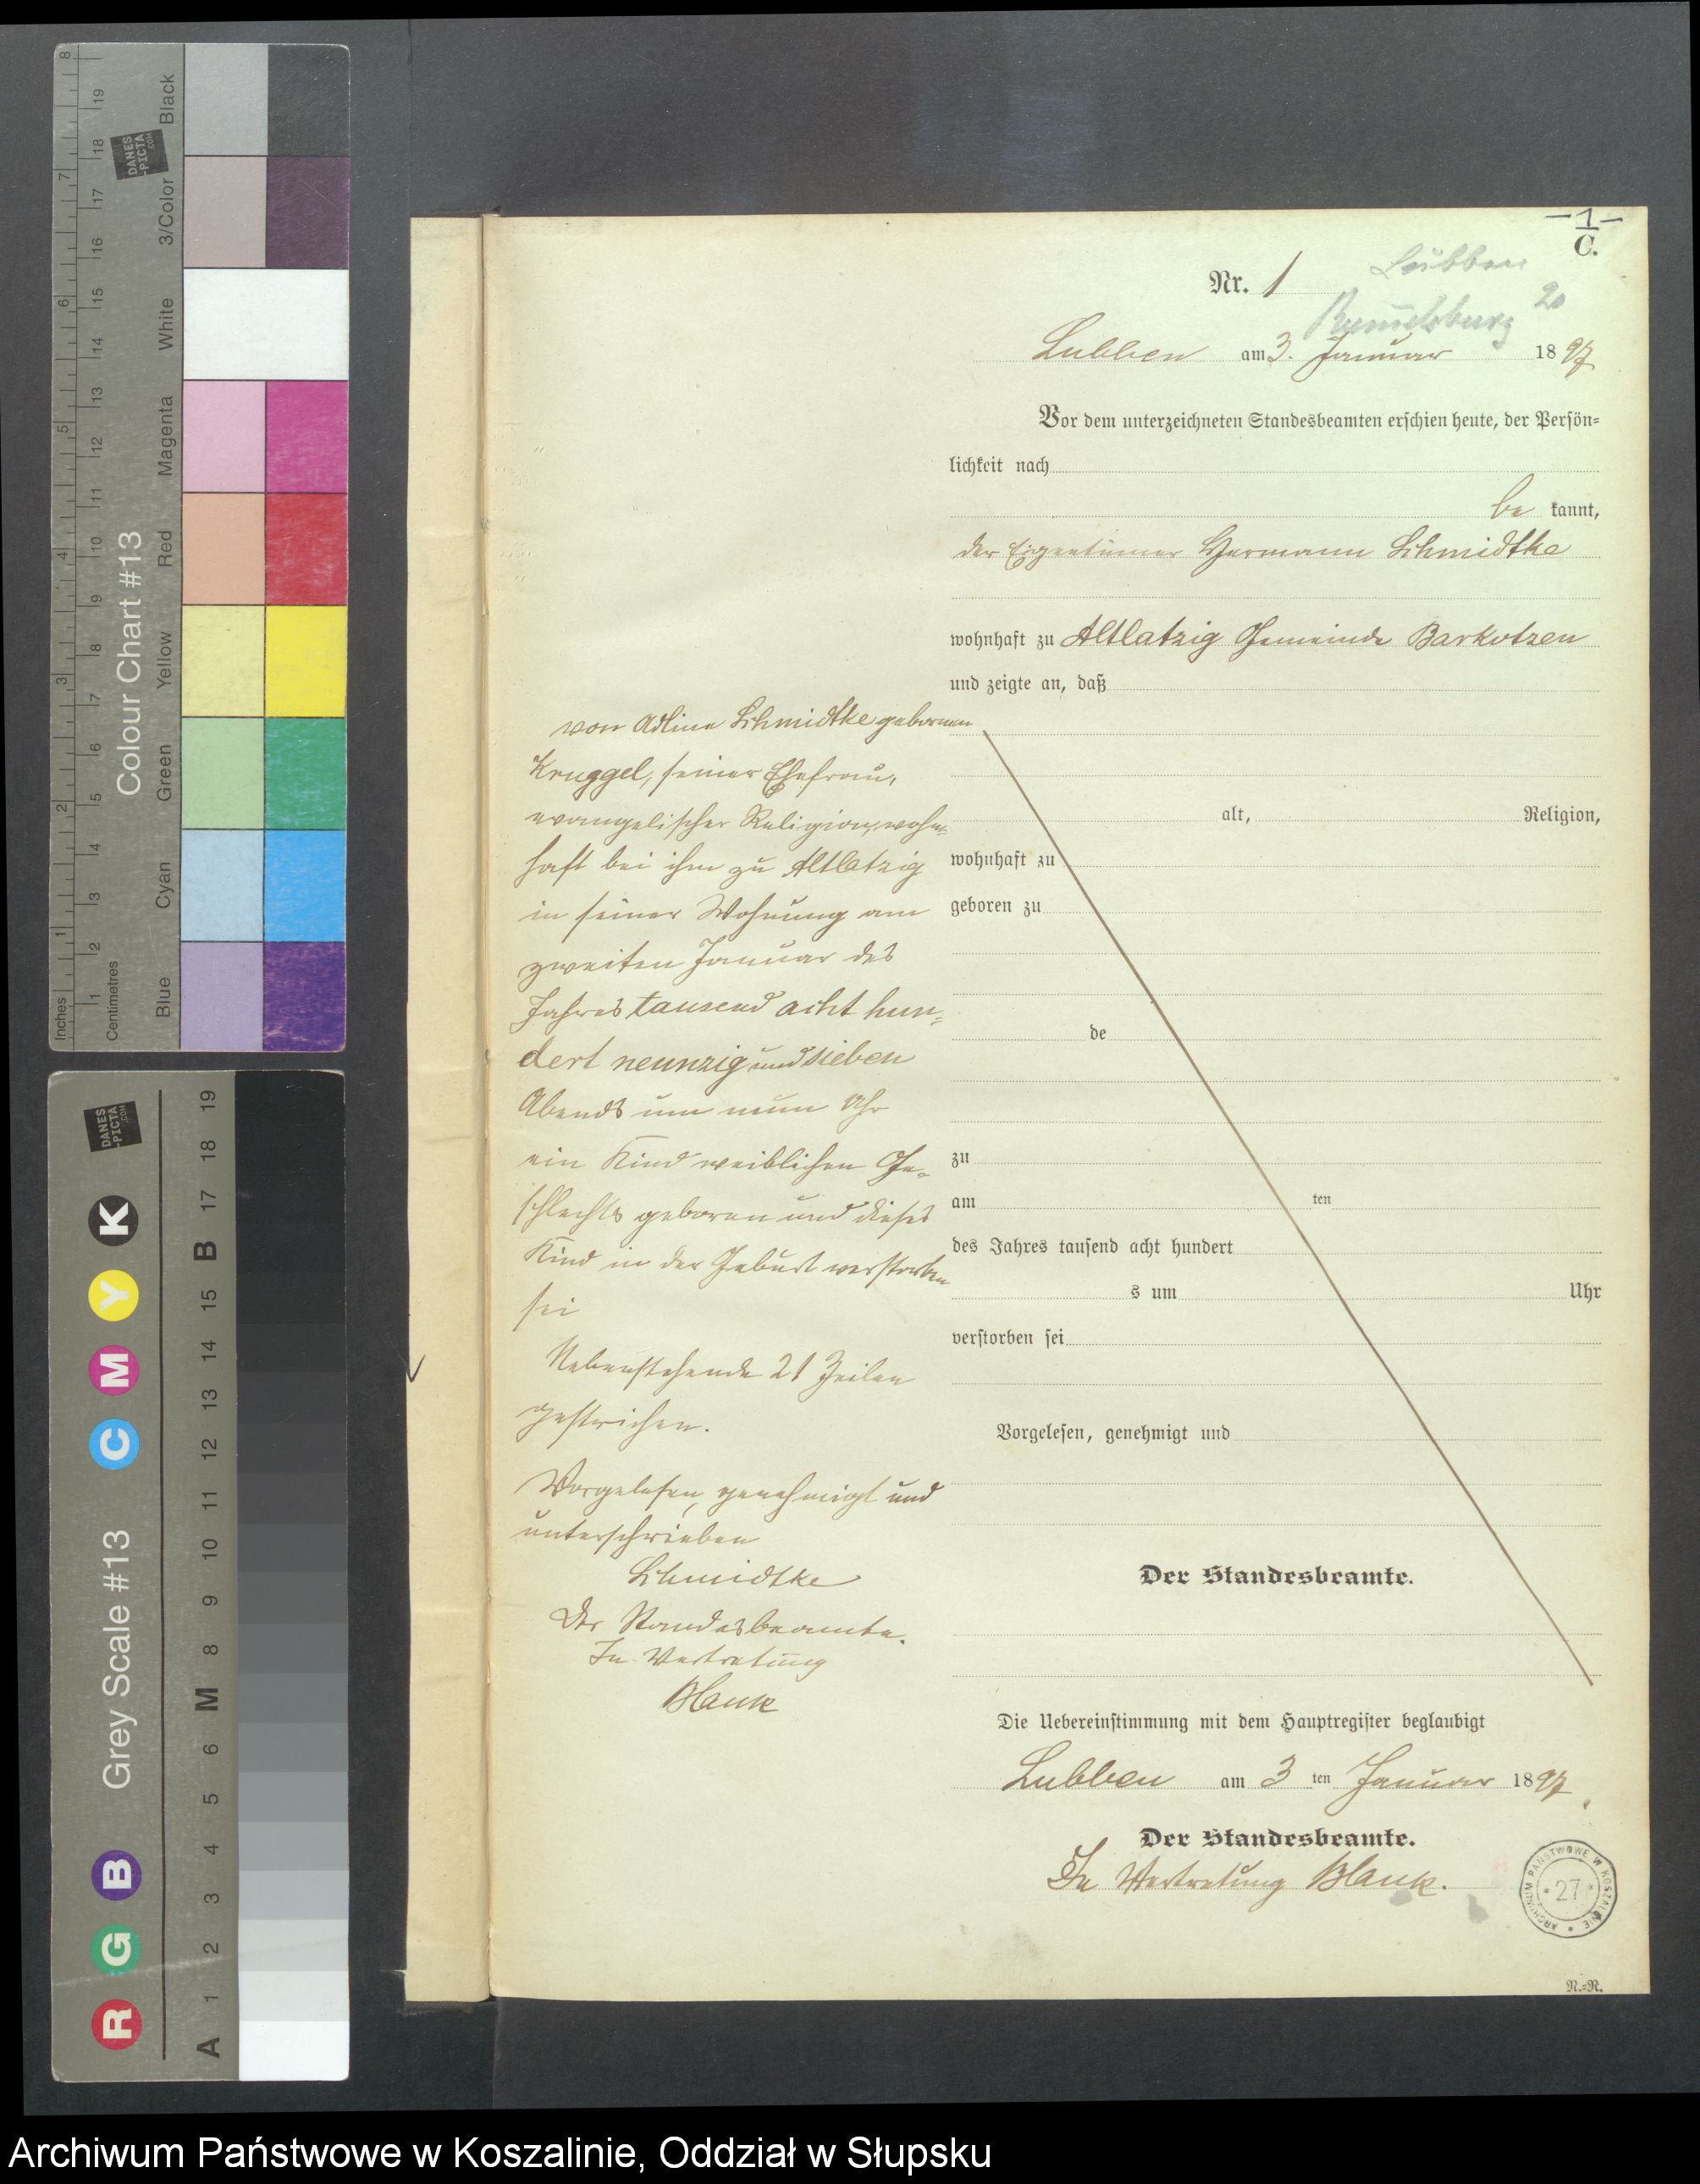 8 7 6 5 4 3 2 1 Inches
19 18 17 16 15 14 13 12 11 10 9 8 7 6 5 4 3 2 1 Centimetres
Colour Chart #13
Black
3/Color
White
Magenta
Red
Yellow
Green
Cyan
Blue
DANES
-PICTA
.COM
DANES
-PICTA
.COM
Grey Scale #13
R G B C M Y K
A 1 2 3 4 5 6 M 8 9 10 11 12 13 14 15 B 17 18 19
-1-
C.
Nr. 1
Lübben
Rummelsburg 20
Lubben am 3. Januar 1897
Vor dem unterzeichneten Standesbeamten erschien heute, der Persön-
lichkeit nach
be kannt,
der Eigentümer Hermann Schmidtke
wohnhaft zu Altlatzig Gemeinde Barkotzen
und zeigte an, daß
von Adline Schmidtke gebornen
Kruggel, seiner Ehefrau,
evangelischer Religion, wohn-
haft bei ihm zu Altlatzig
in seiner Wohnung am
zweiten Januar des
Jahres tausend acht hun-
dert neunzig und sieben
Abends um neun Uhr
ein Kind weiblichen Ge-
schlechts geboren und dieses
Kind in der Geburt verstorben
sei
Nebenstehende 21 Zeilen
gestrichen.
Vorgelesen, genehmigt und
unterschrieben
Schmidtke
Der Standesbeamte.
In Vertretung
Blank
alt, Religion,
wohnhaft zu
geboren zu
de
zu
am ten
des Jahres tausend acht hundert
s um Uhr
verstorben sei
Vorgelesen, genehmigt und
Der Standesbeamte.
Die Uebereinstimmung mit dem Hauptregister beglaubigt
Lubben am 3 ten Januar 1897
Der Standesbeamte.
In Vertretung Blank.
ARCHIWUM PAŃSTWOWE W KOSZALINIE
* 27 *
N.-N.
Archiwum Państwowe w Koszalinie, Oddział w Słupsku